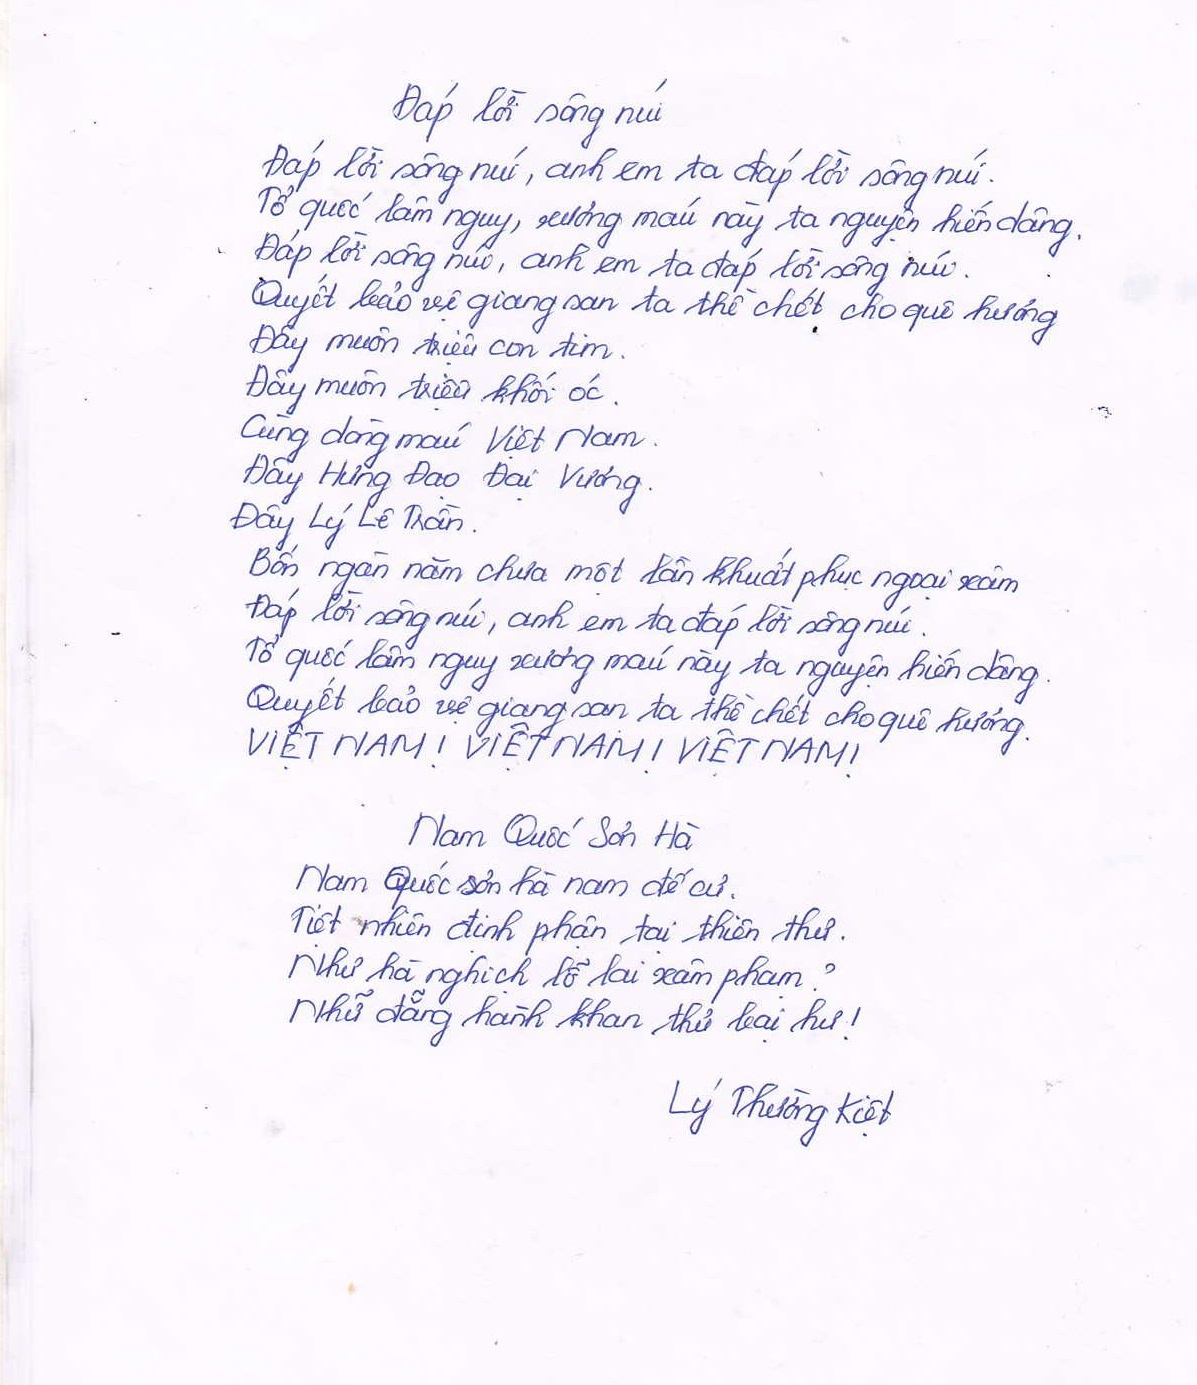 Đáp lời sông núi
Đáp lời sông núi, anh em ta đáp lời sông núi.
Tổ quốc lâm nguy, xương máu này ta nguyện hiến dâng.
Đáp lời sông núi, anh em ta đáp lời sông núi.
Quyết bảo vệ giang san ta thề chết cho quê hương
Đây muôn triệu con tim.
Đây muôn triệu khối óc.
Cùng dòng máu Việt Nam.
Đây Hưng Đạo Đại Vương.
Đây Lý Lê Trần.
Bốn ngàn năm chưa một lần khuất phục ngoại xâm
Đáp lời sông núi, anh em ta đáp lời sông núi.
Tổ quốc lâm nguy xương máu này ta nguyện hiến dâng.
Quyết bảo vệ giang san ta thề chết cho quê hương.
VIỆT NAM! VIỆT NAM! VIỆT NAM!
Nam Quốc Sơn Hà
Nam Quốc sơn hà nam đế cư.
Tiệt nhiên định phận tại thiên thư.
Như hà nghịch lỗ lai xâm phạm?
Nhữ đẳng hành khan thủ bại hư!
Lý Thường Kiệt